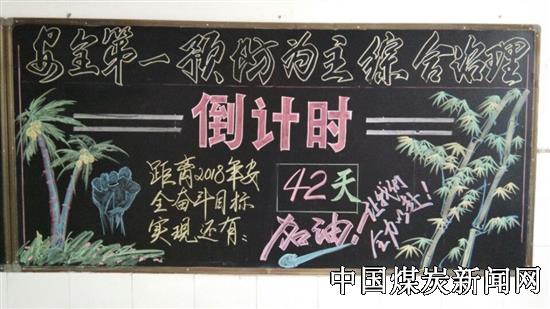 安全第一 预防为主 综合治理
倒计时
距离2018年安
全奋斗目标
实现还有:
42天
加油!
让我们
全力以赴!
中国煤炭新闻网